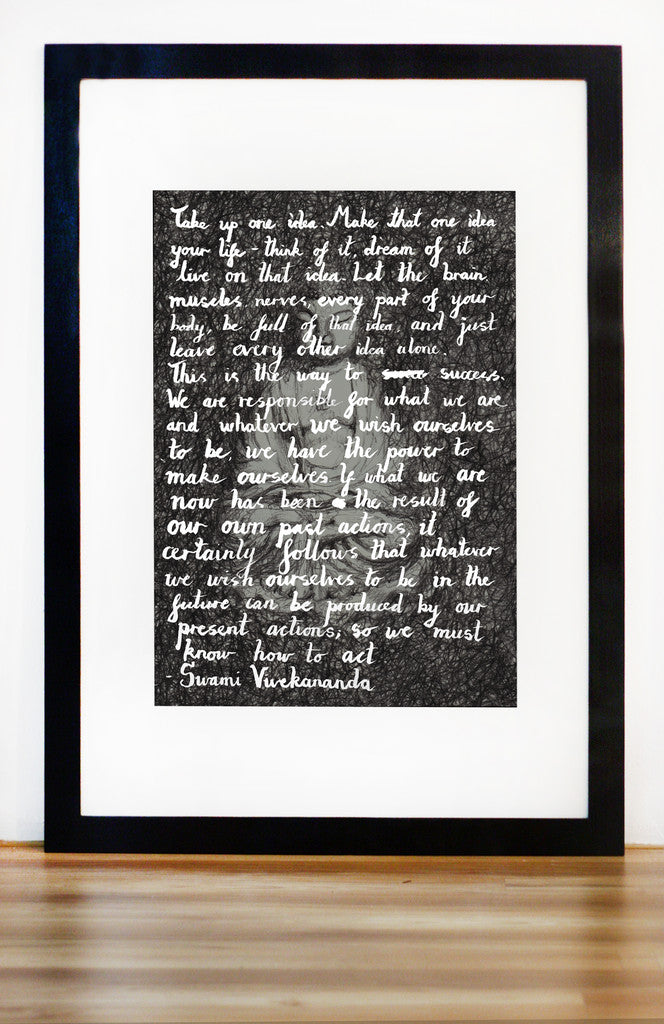 Take up one idea. Make that one idea
your life - think of it, dream of it
live on that idea. Let the brain,
muscles, nerves, every part of your
body, be full of that idea, and just
leave every other idea alone.
This is the way to success.
We are responsible for what we are
and whatever we wish ourselves
to be, we have the power to
make ourselves. If what we are
now has been the result of
our own past actions, it
certainly follows that whatever
we wish ourselves to be in the
future can be produced by our
present actions; so we must
know how to act
- Swami Vivekananda